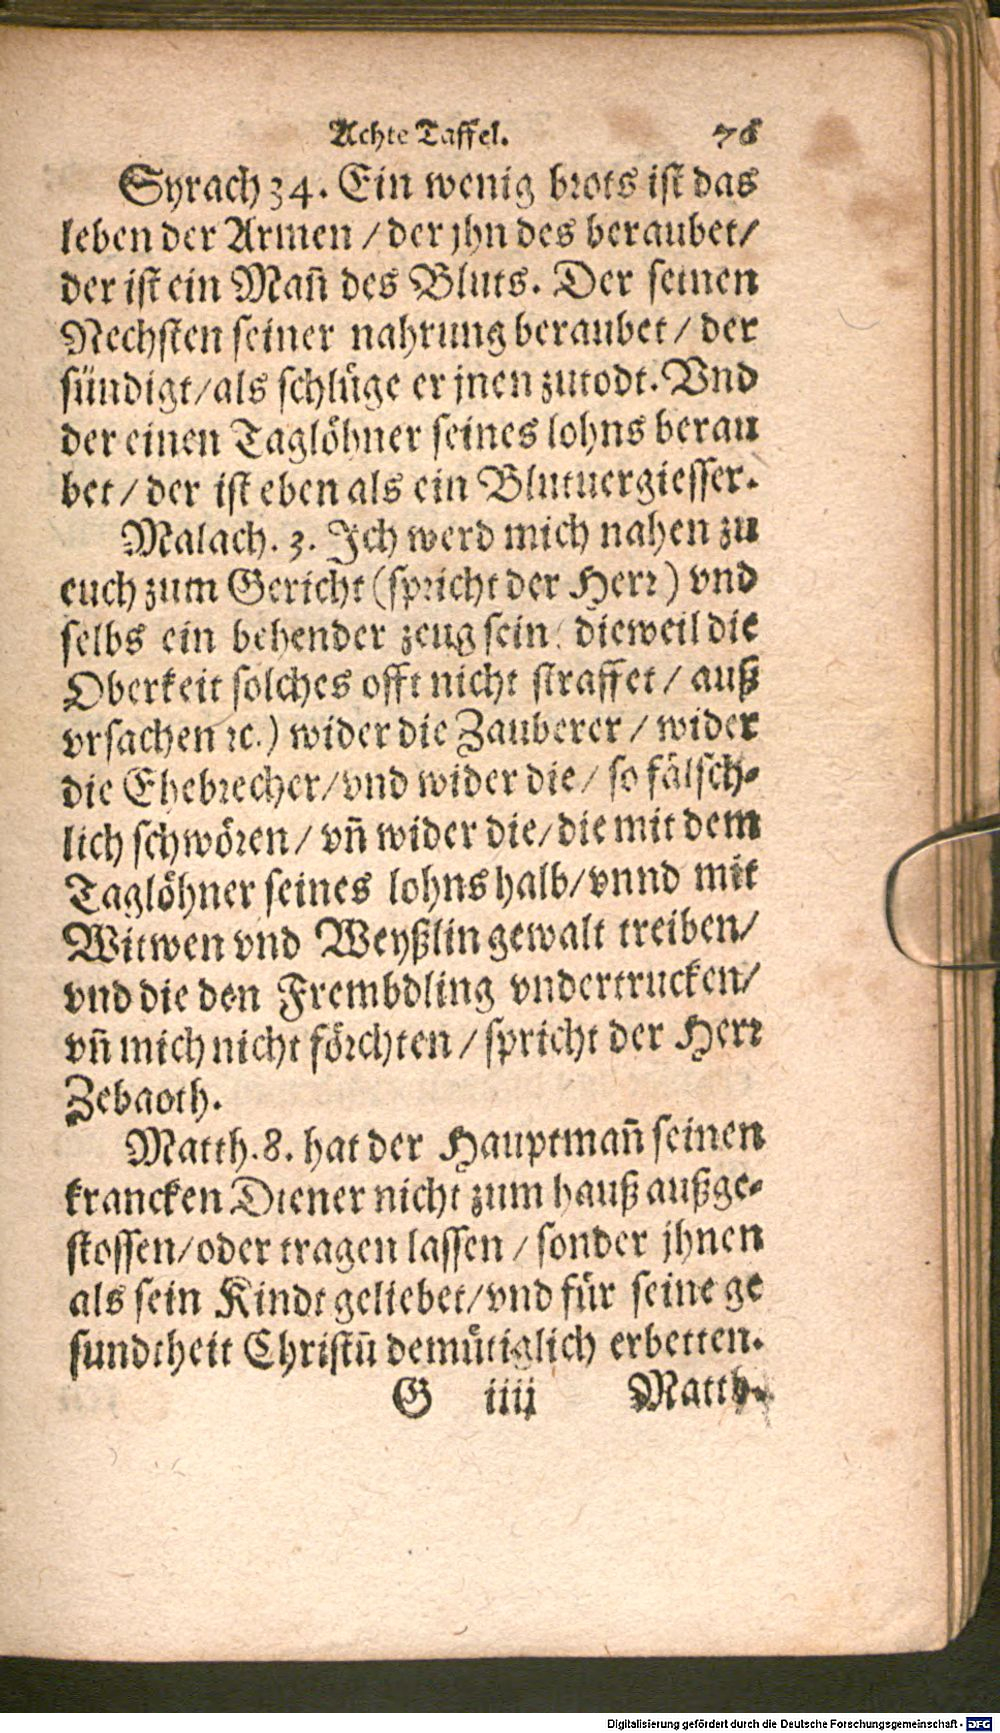 Achte Taffel. 76
Syrach 34. Ein wenig brots ist das
leben der Armen / der jhn des beraubet /
der ist ein Mañ des Bluts. Der seinen
Nechsten seiner nahrung beraubet / der
sündigt / als schlüge er jnen zutodt. Vnd
der einen Taglöhner seines lohns berau
bet / der ist eben als ein Blutuergiesser.
Malach. 3. Ich werd mich nahen zu
euch zum Gericht (spricht der Herr) vnd
selbs ein behender zeug sein ( dieweil die
Oberkeit solches offt nicht straffet / auß
vrsachen ꝛc.) wider die Zauberer / wider
die Ehebrecher / vnd wider die / so fälsch⸗
lich schwören / vñ wider die / die mit dem
Taglöhner seines lohns halb / vnnd mit
Witwen vnd Weyßlin gewalt treiben /
vnd die den Frembdling vndertrucken /
vñ mich nicht förchten / spricht der Herr
Zebaoth.
Matth. 8. hat der Hauptmañ seinen
krancken Diener nicht zum hauß außge⸗
stossen / oder tragen lassen / sonder jhnen
als sein Kindt geliebet / vnd für seine ge
sundtheit Christū demütiglich erbetten.
G iiij Matth.
Digitalisierung gefördert durch die Deutsche Forschungsgemeinschaft - DFG